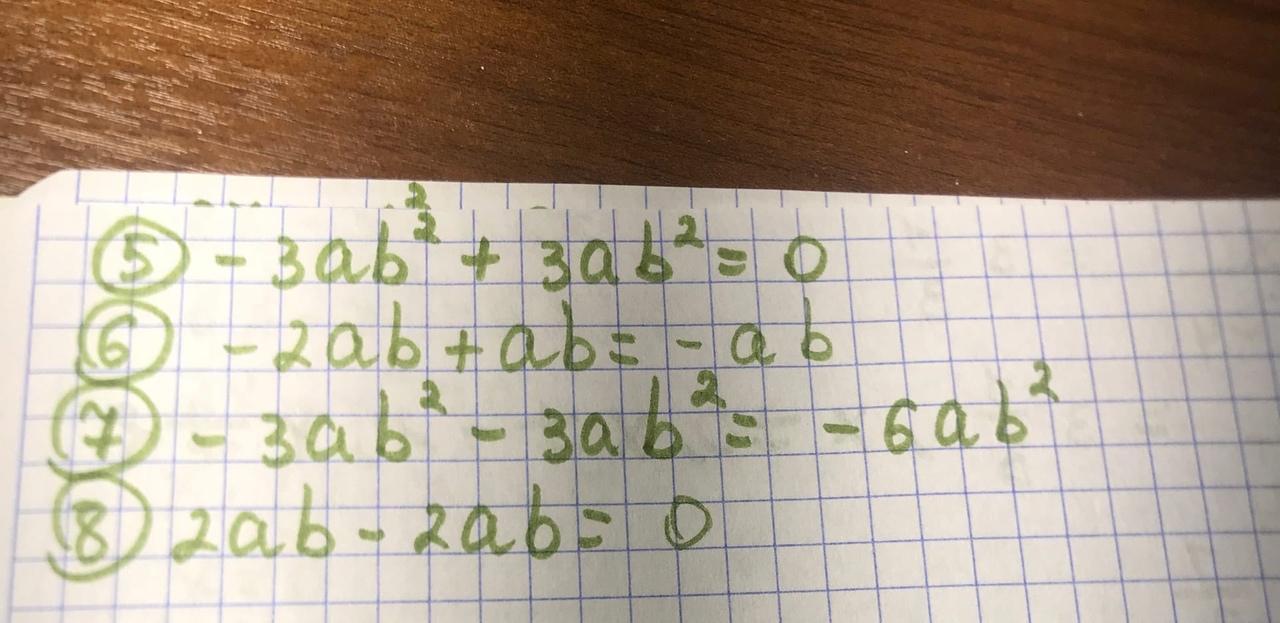 ⑤ - 3ab² + 3ab² = 0
⑥ - 2ab + ab = - ab
⑦ - 3ab² - 3ab² = - 6ab²
⑧ 2ab - 2ab = 0